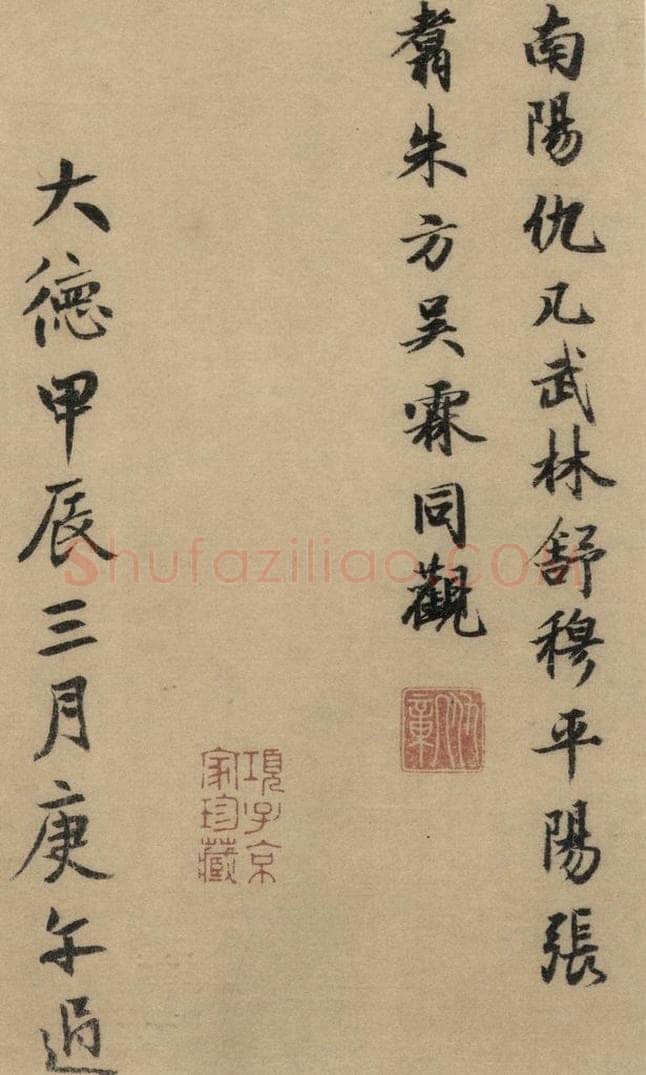 南陽仇几武林舒穆平陽張
翥朱方吳霖同觀
項子京
家珍藏
大德甲辰三月庚午過
Shufaziliao.com